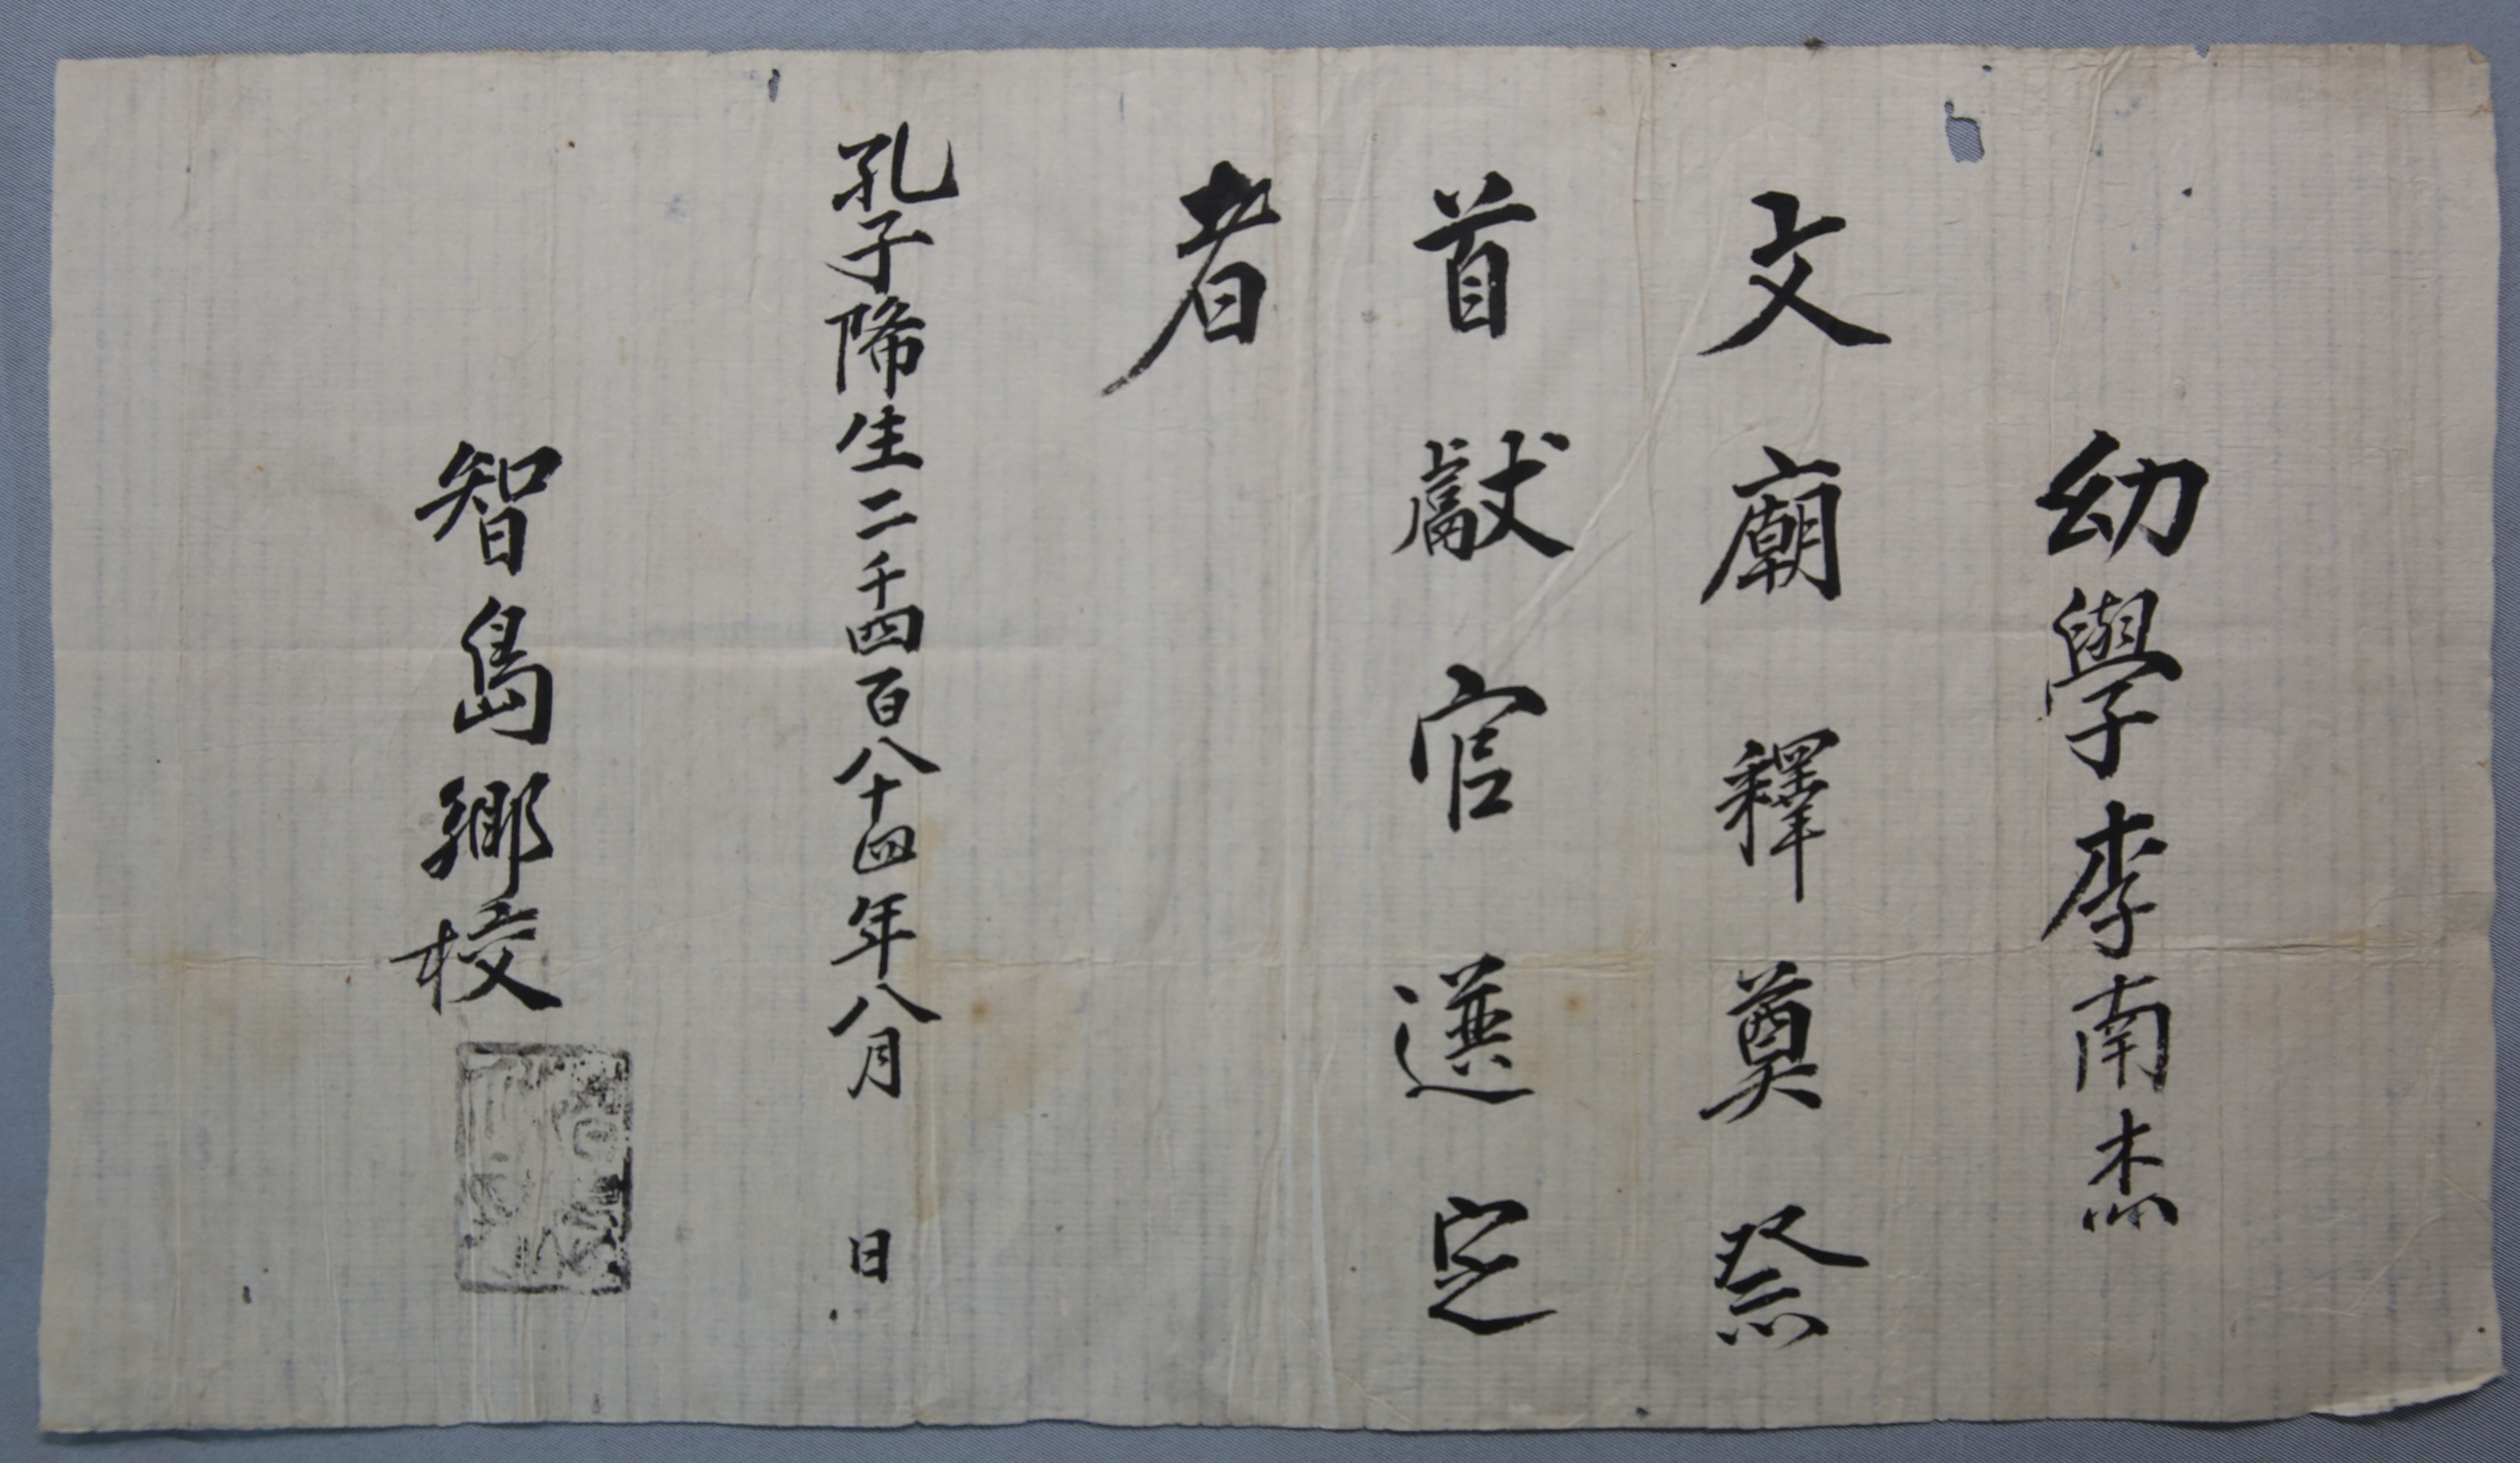 幼學李南杰
文廟釋奠祭
首獻官選定
者
孔子降生二千四百八十四年八月 日
智島鄉校